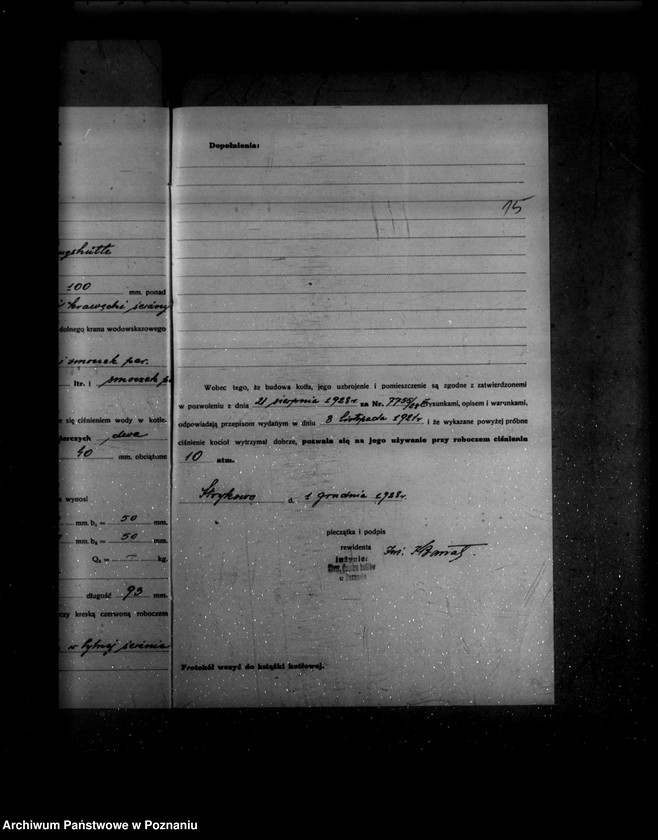 100 mm. ponad
dolnego kranu wodowskazowego
i smoczek par.
ltr. i smoczek
się ciśnieniem wody w kotle-
dwa
40 mm. obciążone
wynosi
mm. b₁ = 50 mm.
mm. b₂ = 50 mm.
Q₂ = — kg.
długość 93 mm.
czy kreską czerwoną roboczem
w tylnej ścianie
Dopełnienia:
15
Wobec tego, że budowa kotła, jego uzbrojenie i pomieszczenie są zgodne z zatwierdzonemi
w pozwoleniu z dnia 21 sierpnia 1928 r. za Nr. rysunkami, opisem i warunkami,
odpowiadają przepisom wydanym w dniu 8 listopada 1921 r. i że wykazane powyżej próbne
ciśnienie kocioł wytrzymał dobrze, pozwala się na jego używanie przy roboczem ciśnieniu
10 atm.
Strykowo d. 1 grudnia 1928 r.
pieczątka i podpis
rewidenta
Inżynier
w Poznaniu
Protokół wszyć do książki kotłowej.
Archiwum Państwowe w Poznaniu